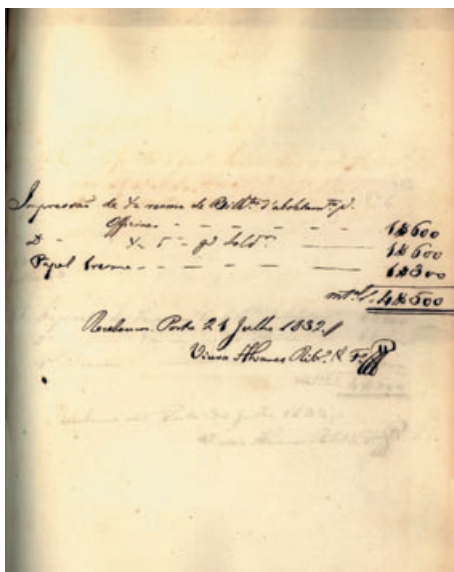 Impressão de ½ resma de Bilh.tes d'abolctam.tos p.ª
Officiaes - - - - - - 1$600
D.º - ½ " " p.ª Sold.os —— 1$600
Papel 1 resma - - - - - - 1$300
4$500
Recebemos. Porto 21 Julho 1832
Viuva Alvares Rib.º & F.os